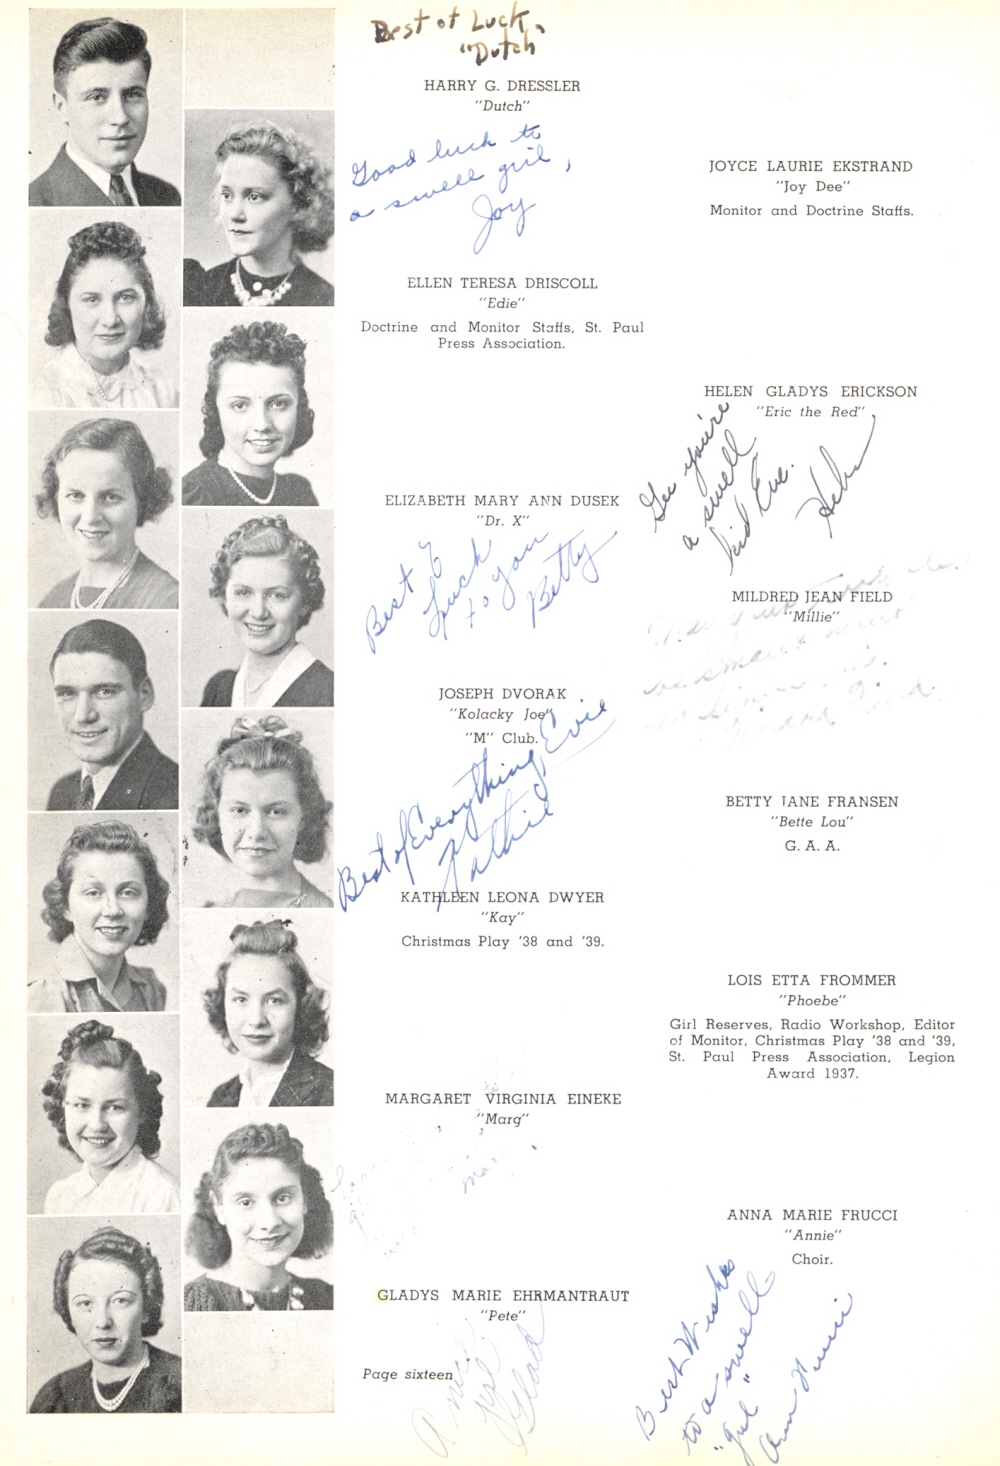 Best of Luck,
"Dutch"
HARRY G. DRESSLER
"Dutch"
Good luck to
a swell girl,
Joy
ELLEN TERESA DRISCOLL
"Edie"
Doctrine and Monitor Staffs, St. Paul
Press Association.
ELIZABETH MARY ANN DUSEK
"Dr. X"
Best of
Luck
to you
Betty
JOSEPH DVORAK
"Kolacky Joe"
"M" Club.
Best of Everything Evie
Kathie
KATHLEEN LEONA DWYER
"Kay"
Christmas Play '38 and '39.
MARGARET VIRGINIA EINEKE
"Marg"
GLADYS MARIE EHRMANTRAUT
"Pete"
A nice
gal
Glad
Page sixteen
JOYCE LAURIE EKSTRAND
"Joy Dee"
Monitor and Doctrine Staffs.
HELEN GLADYS ERICKSON
"Eric the Red"
Gee you're
a swell
kid Eve.
Helen
MILDRED JEAN FIELD
"Millie"
BETTY JANE FRANSEN
"Bette Lou"
G. A. A.
LOIS ETTA FROMMER
"Phoebe"
Girl Reserves, Radio Workshop, Editor
of Monitor, Christmas Play '38 and '39,
St. Paul Press Association, Legion
Award 1937.
ANNA MARIE FRUCCI
"Annie"
Choir.
Best Wishes
to a swell
"gal"
Ann Frucci